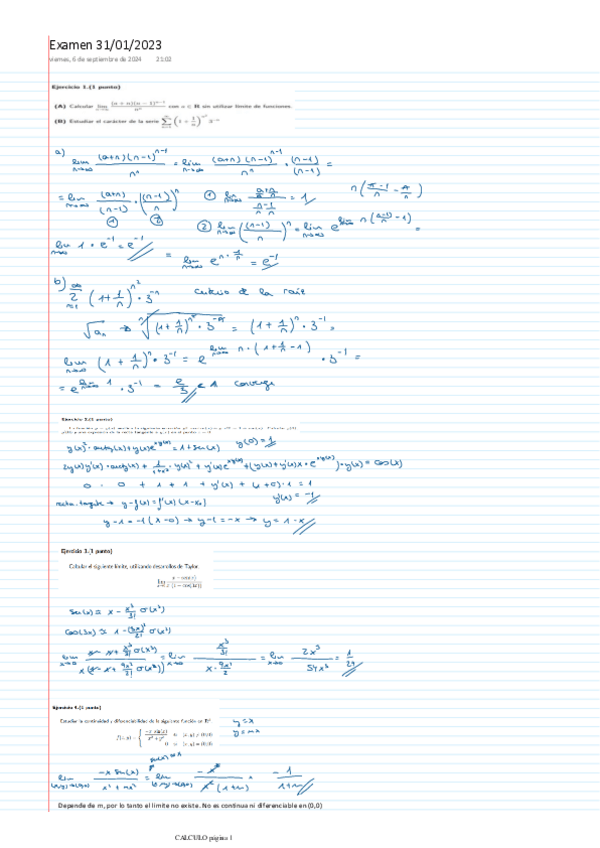 Examen 31/01/2023
viernes, 6 de septiembre de 2024 21:02
Ejercicio 1.(1 punto)
(A) Calcular lim (a + n)(n − 1)^(n−1) / n^n con a ∈ R sin utilizar límite de funciones.
(B) Estudiar el carácter de la serie ∑ (1 + 1/n)^(n²) 3^(−n)
a)
lim n→∞ (a+n)(n-1)^(n-1) / n^n = lim n→∞ (a+n)(n-1)^(n-1) / n^n · (n-1)/(n-1) =
= lim n→∞ (a+n)/(n-1) · ((n-1)/n)^n ① lim n→∞ (a/n + n/n) / (n-1)/n = 1
① ② ② lim n→∞ ((n-1)/n)^n = lim n→∞ e^(lim n((n-1)/n - 1)) =
lim n→∞ 1 · e^-1 = e^-1 = lim n→∞ e^(n · -1/n) = e^-1
b) ∞∑ (1+1/n)^n² · 3^-n criterio de la raíz
√an → n√((1+1/n)^n² · 3^-n) = (1+1/n)^n · 3^-1 =
lim n→∞ (1+1/n)^n · 3^-1 = e^(lim n→∞ n · (1+1/n-1)) · 3^-1 =
= e^(lim 1) · 3^-1 = e/3 < 1 converge
Ejercicio 2.(1 punto)
y(x)² · arctg(x) + y(x)e^(xy(x)) = 1 + sen(x) y(0) = 1
2y(x)y'(x) · arctg(x) + 1/(1+x²) · y(x)² + y'(x)e^(xy(x)) + (y(x)+y'(x)x · e^(xy(x))) · y(x) = cos(x)
0 · 0 + 1 + 1 + y'(x) + (x+0) · 1 = 1
recta tangente → y-f(x) = f'(x)(x-x₀) y'(x) = -1
y-1 = -1(x-0) → y-1 = -x → y = 1-x
Ejercicio 3.(1 punto)
Calcular el siguiente límite, utilizando desarrollos de Taylor.
lim x→0 x − sen(x) / x(1 − cos(3x))
sen(x) ≈ x - x³/3! σ(x³)
cos(3x) ≈ 1 - (3x)²/2! σ(x²)
lim x→0 x - x + x³/3! σ(x³) / x(x - x + 9x²/2! σ(x²)) = lim x→0 x³/3! / x · 9x²/2 = lim x→0 2x³/54x³ = 1/27
Ejercicio 4.(1 punto)
Estudiar la continuidad y diferenciabilidad de la siguiente función en R².
y = x
y = mx
f(x, y) = { −x sen(x) / x² + y² si (x, y) ≠ (0,0)
0 si (x, y) = (0,0)
sen(x) ≈ x
lim (x,y)→(0,0) -x sen(x) / x² + mx² = lim (x,y)→(0,0) -x² / x²(1+m) = -1/1+m
Depende de m, por lo tanto el limite no existe. No es continua ni diferenciable en (0,0)
CALCULO página 1